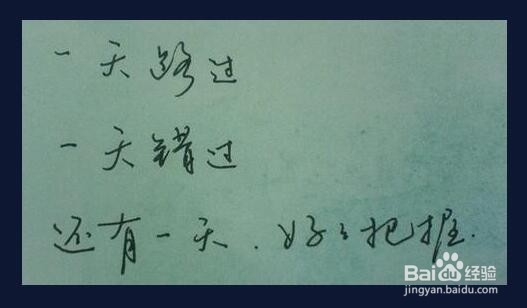 一天路过
一天错过
还有一天.好々把握.
Baidu经验
jingyan.baidu.com